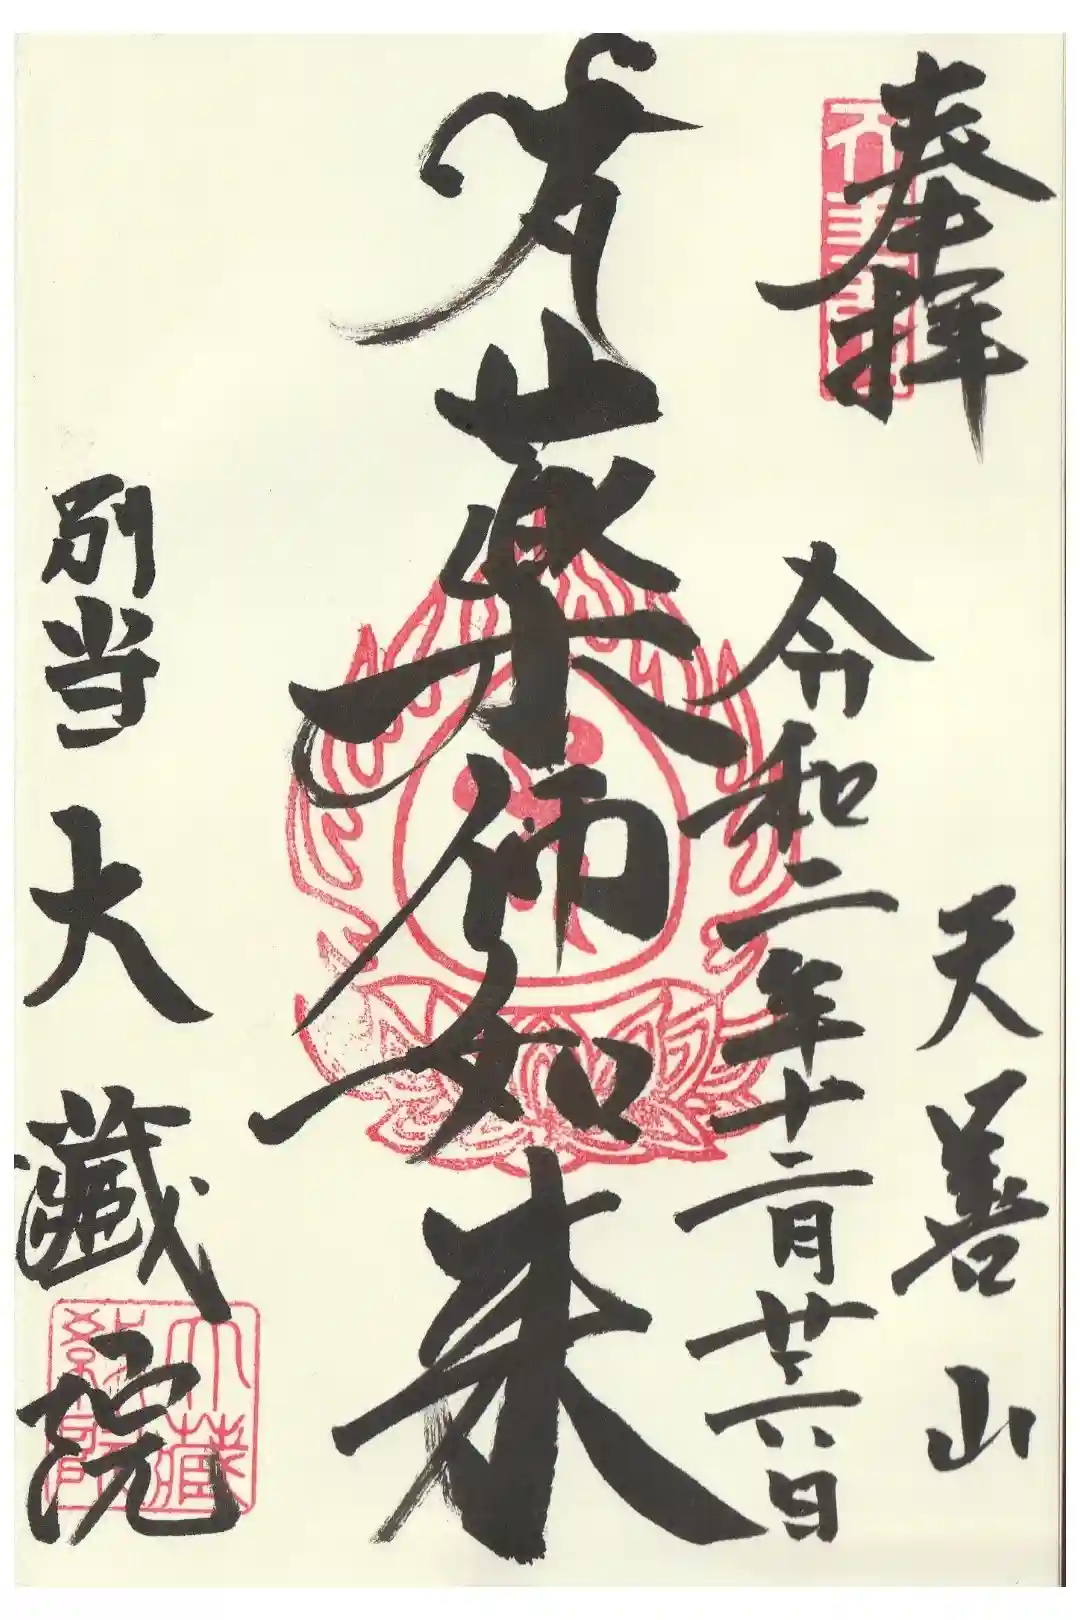 奉拝
天善山
令和二年十二月廿六日
薬師如来
別当大蔵院